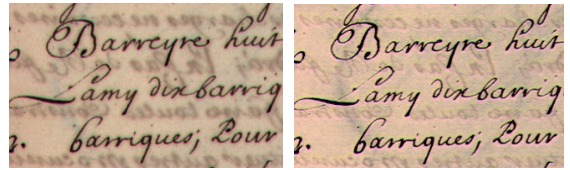 Barreyre huit
Lamy dix barriq
barriques; Pour
Barreyre huit
Lamy dix barriq
barriques; Pour